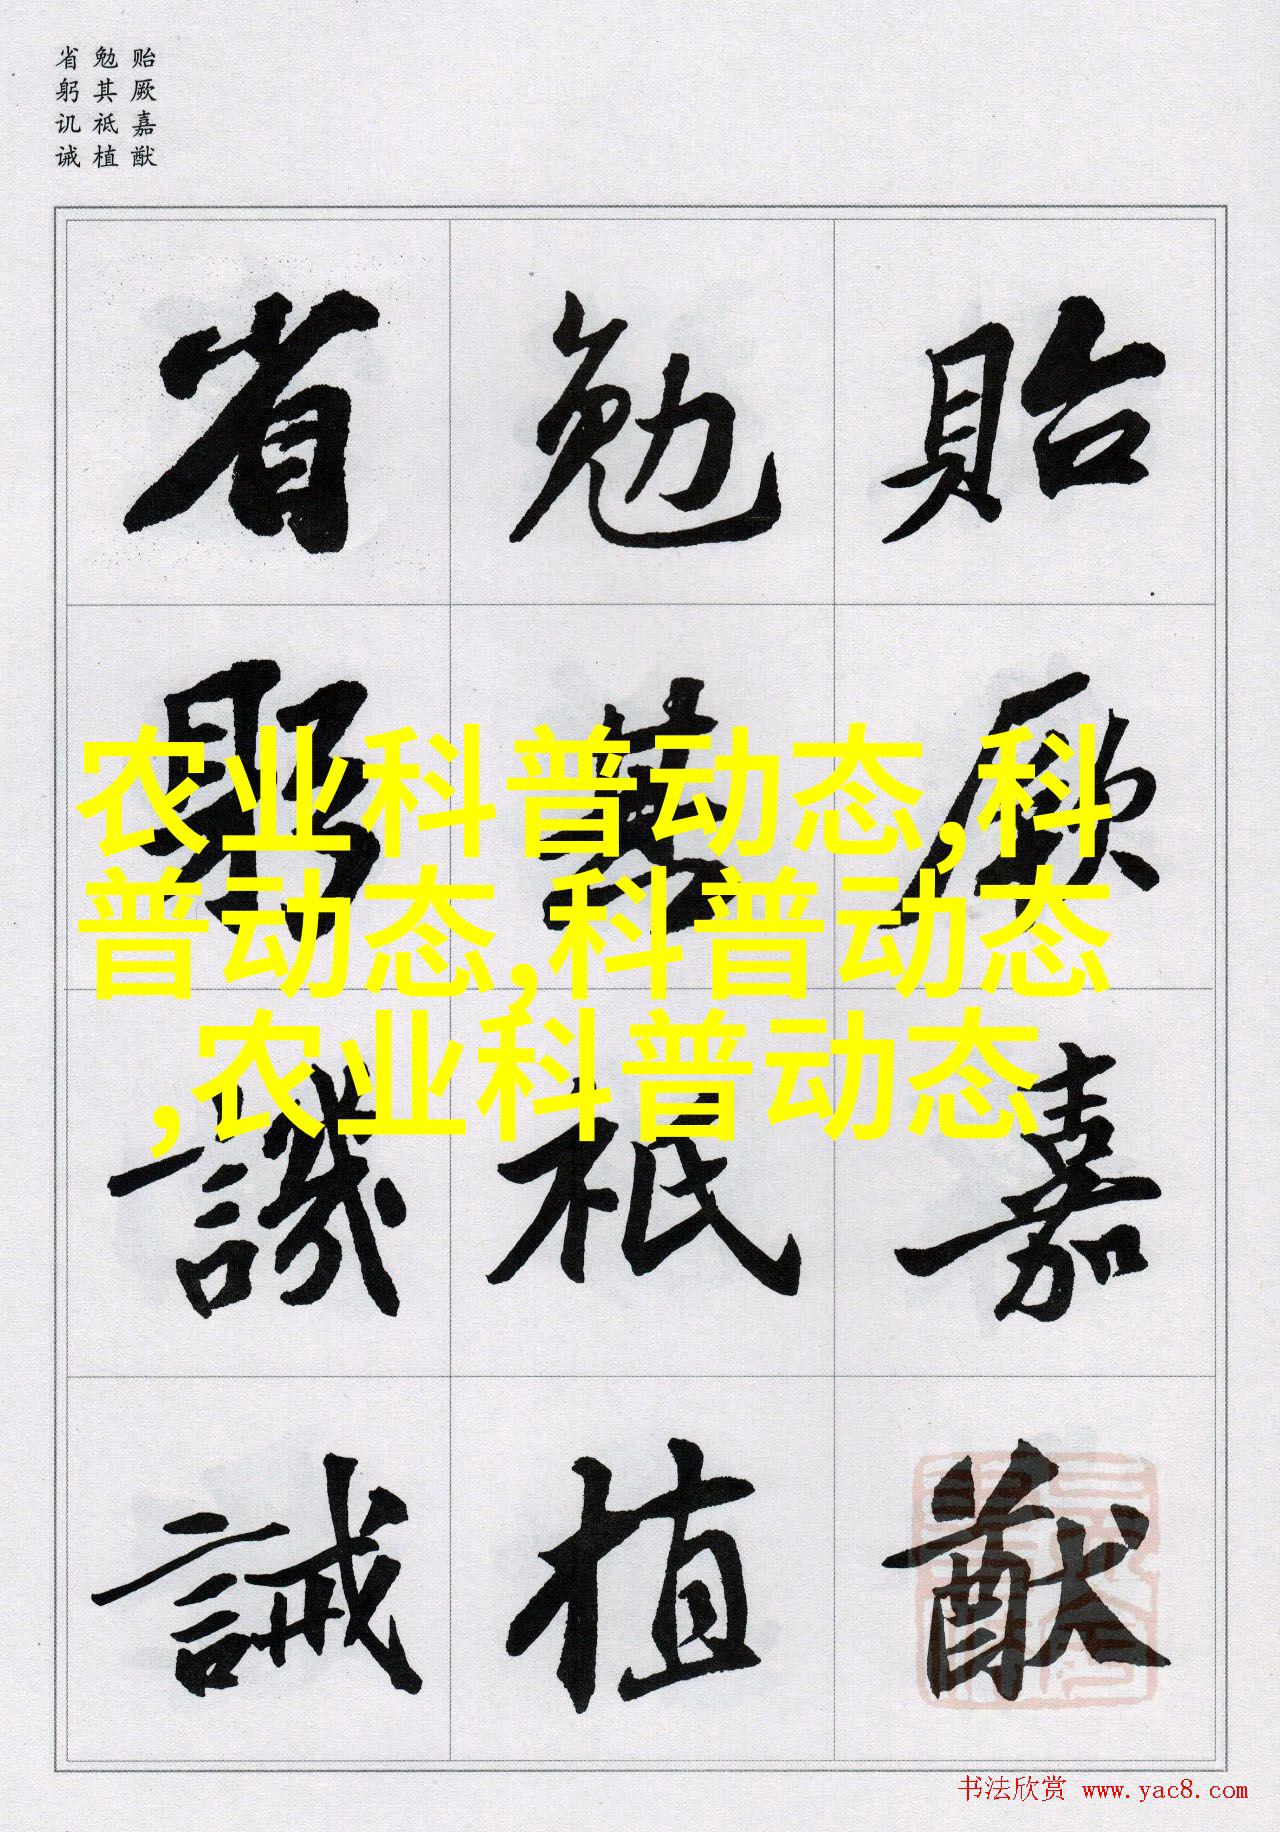 贻厥嘉猷
勉其祗植
省躬讥诫
貽厥嘉猷
勉其祗植
省躬譏誡
农业科普动态,科
普动态,科普动态
,农业科普动态
书法欣赏 www.yac8.com